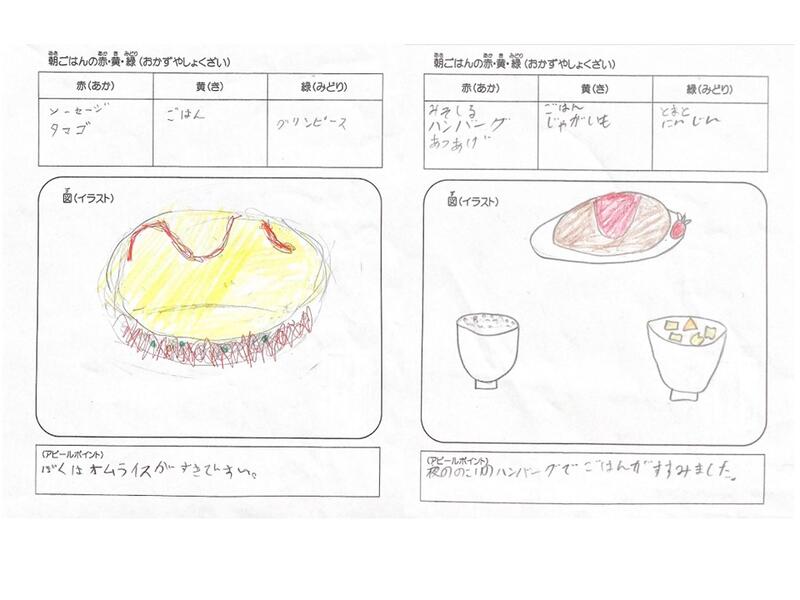 朝ごはんの赤・黄・緑（おかずやしょくざい）
赤（あか） 黄（き） 緑（みどり）
ソーセージ
タマゴ
ごはん
グリンピース
図（イラスト）
（アピールポイント）
ぼくはオムライスがすきですい。
朝ごはんの赤・黄・緑（おかずやしょくざい）
赤（あか） 黄（き） 緑（みどり）
みそしる
ハンバーグ
あつあげ
ごはん
じゃがいも
とまと
にんじん
図（イラスト）
（アピールポイント）
夜ののこりのハンバーグでごはんがすすみました。